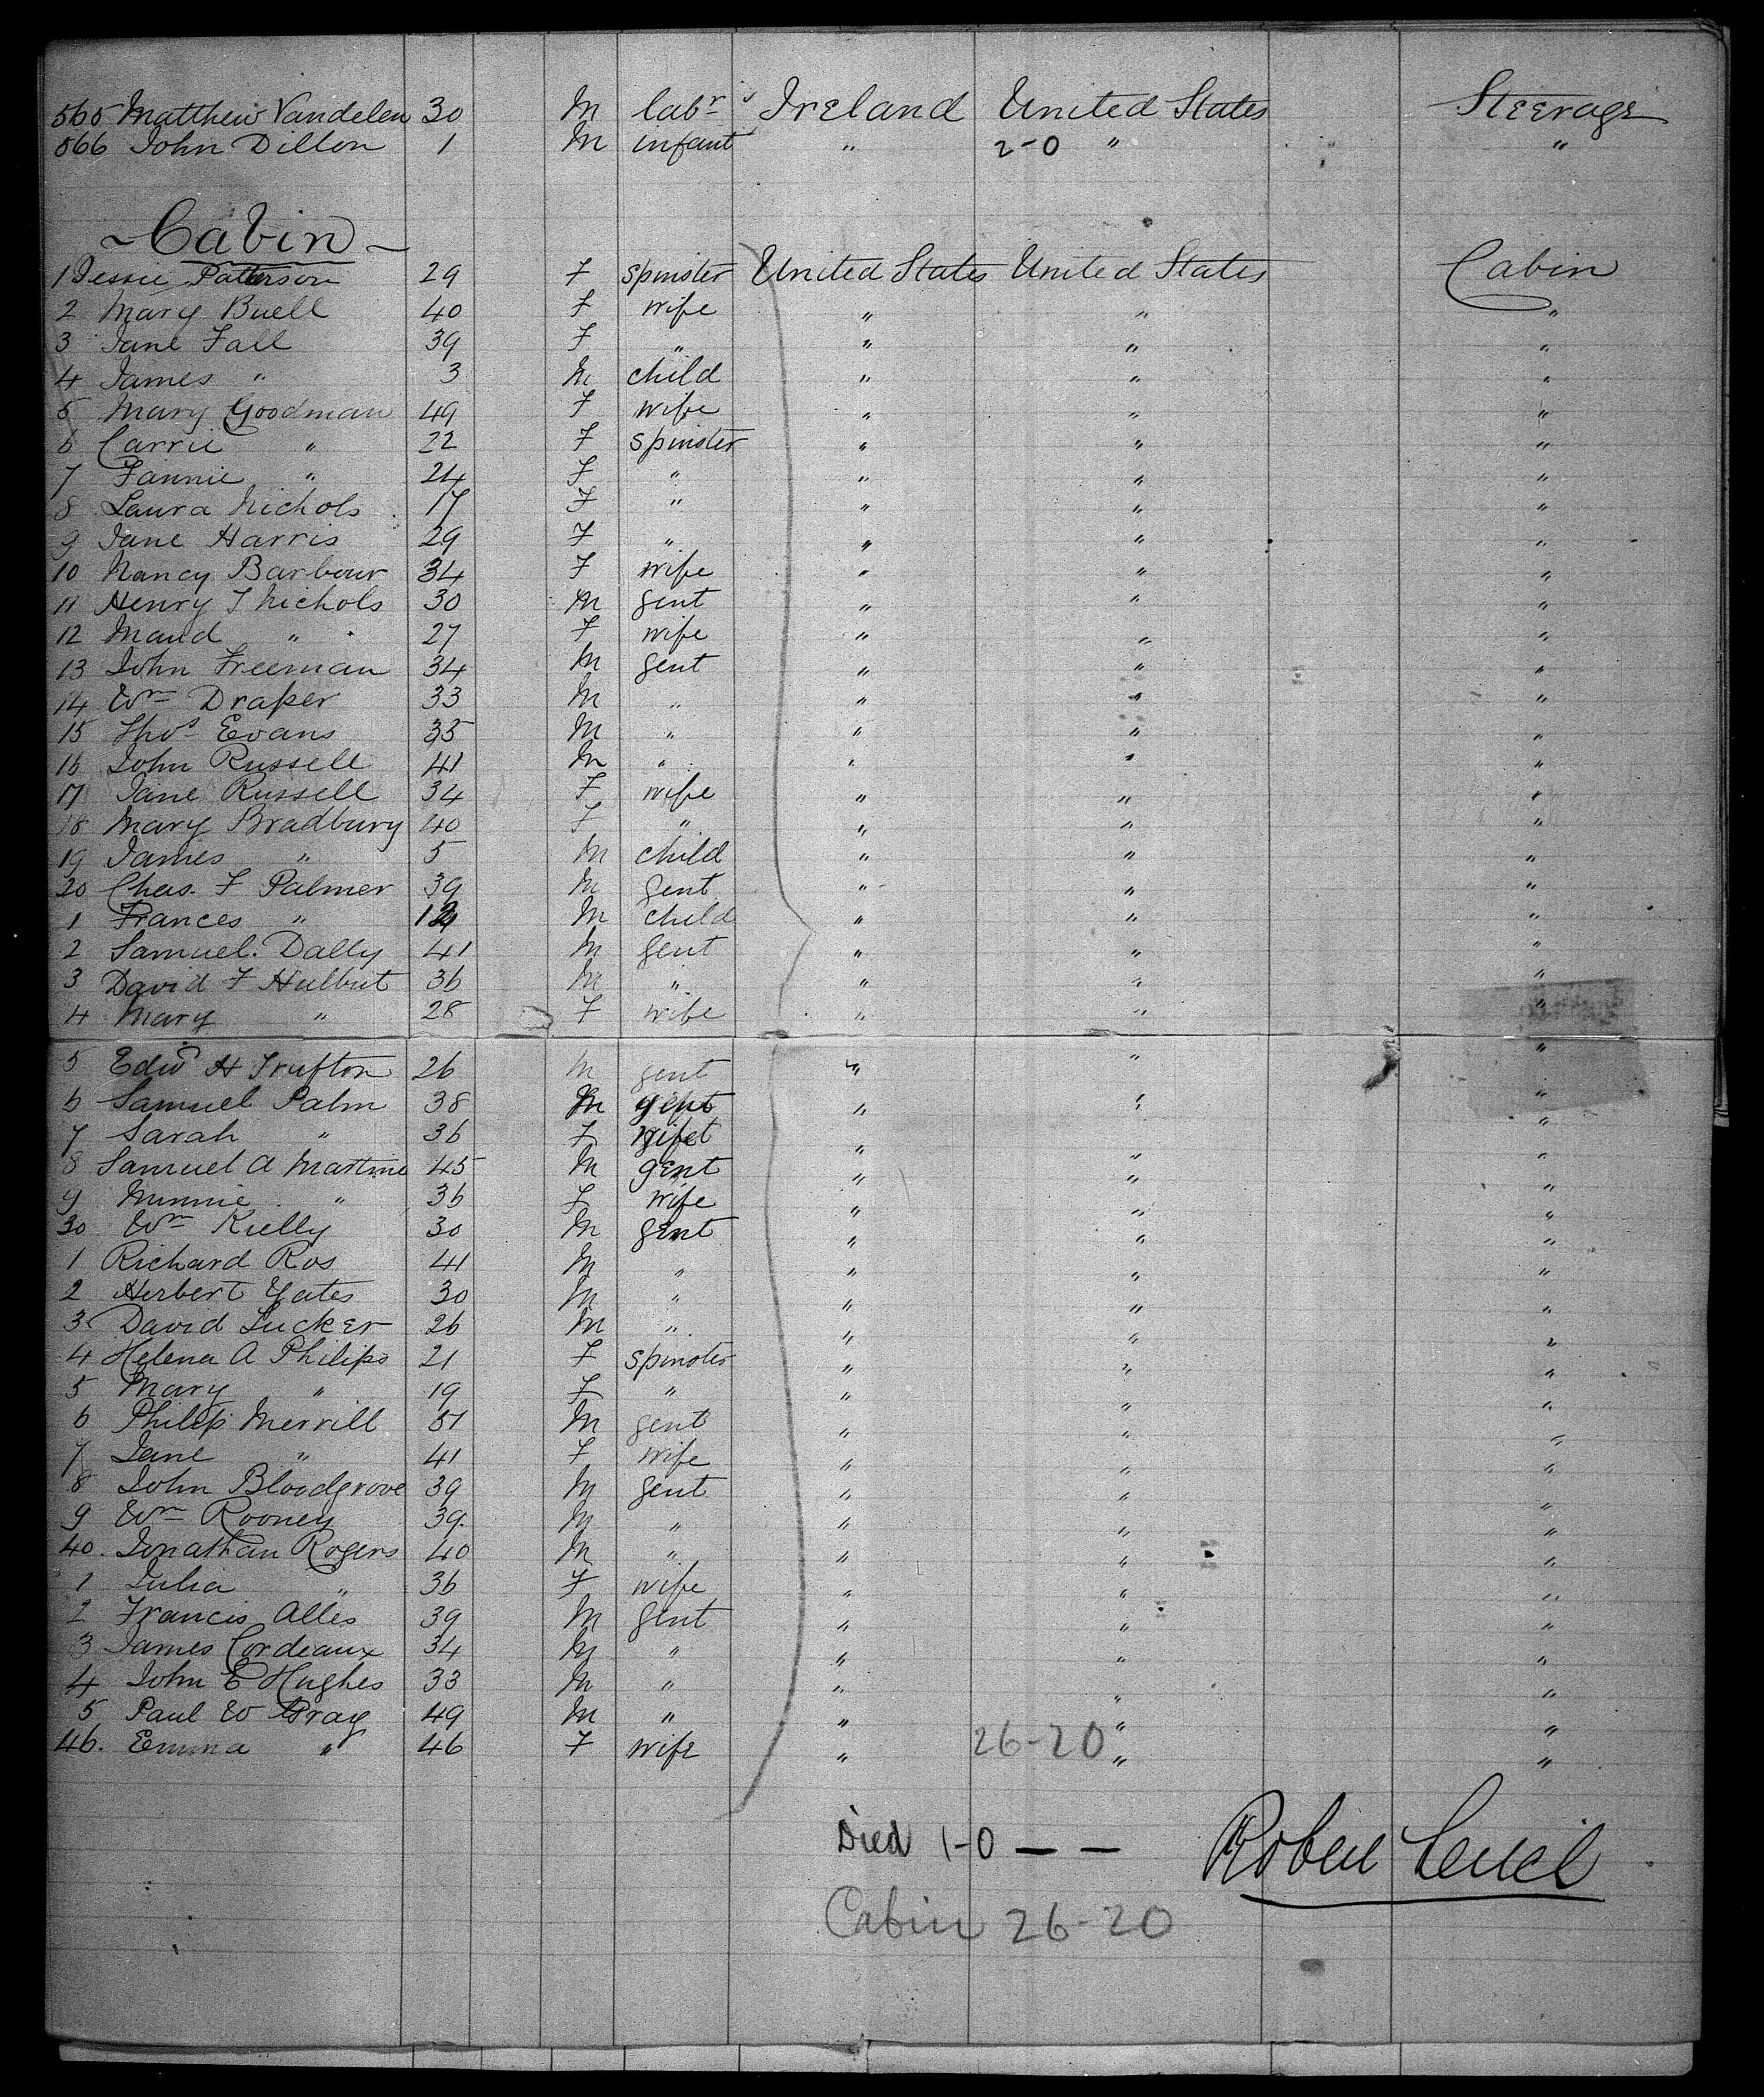 565 Matthew Vandelen 30 M labr Ireland United States Steerage
566 John Dillon 1 M infant " 2-0 " "
Cabin
1 Jessie Patterson 29 F spinster United States United States Cabin
2 Mary Buell 40 F wife " " "
3 Jane Fall 39 F " " " "
4 James " 3 M child " " "
5 Mary Goodman 49 F wife " " "
6 Carrie " 22 F spinster " " "
7 Fannie " 24 F " " " "
8 Laura Nichols 17 F " " " "
9 Jane Harris 29 F " " " "
10 Nancy Barbour 34 F wife " " "
11 Henry T Nichols 30 M gent " " "
12 Maud " 27 F wife " " "
13 John Freeman 34 M gent " " "
14 Wm Draper 33 M " " " "
15 Thos Evans 35 M " " " "
16 John Russell 41 M " " " "
17 Jane Russell 34 F wife " " "
18 Mary Bradbury 40 F " " " "
19 James " 5 M child " " "
20 Chas. F Palmer 39 M gent " " "
1 Frances " M child " " "
2 Samuel Dally 41 M gent " " "
3 David F Hulbut 36 M " " " "
4 Mary " 28 F wife " " "
5 Edwd H Trufton 26 M gent " " "
6 Samuel Palm 38 M gent " " "
7 Sarah " 36 F wife " " "
8 Samuel A Martine 45 M gent " " "
9 Minnie " 36 F wife " " "
30 Wm Kielly 30 M gent " " "
1 Richard Ros 41 M " " " "
2 Herbert Yates 30 M " " " "
3 David Tucker 26 M " " " "
4 Helena A Philips 21 F spinster " " "
5 Mary " 19 F " " " "
6 Philip Merrill 51 M gent " " "
7 Jane " 41 F wife " " "
8 John Bloodgrove 39 M gent " " "
9 Wm Rooney 39. M " " " "
40. Jonathan Rogers 40 M " " " "
1 Julia " 36 F wife " " "
2 Francis Alles 39 M gent " " "
3 James Cordeaux 34 M " " " "
4 John E Hughes 33 M " " " "
5 Paul W Gray 49 M " " " "
46. Emma " 46 F wife " 26-20 " "
Died 1-0 — —
Robert
Cabin 26-20